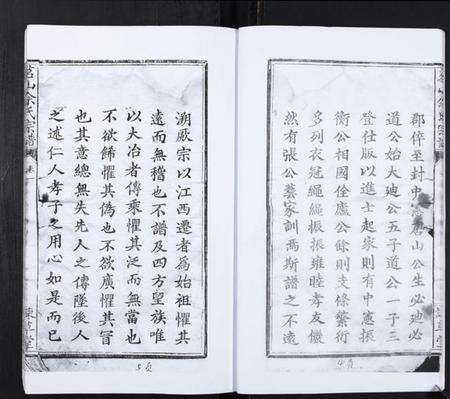 郡倅至封中憲廬山公生必迪必
道公始大迪公五子道公一子三
登仕版以進士起家則有中憲振
衙公相國佺廬公餘則支條繁衍
多列衣冠繩繩振振雍睦孝友儼
然有張公藝家訓焉斯譜之不遠
4頁
溯厥宗以江西遷者爲始祖懼其
遠而無稽也不譜及四方望族唯
以大冶者傳乘懼其泛而無當也
不欲餙懼其僞也不欲廣懼其冒
也其意總無失先人之傳墜後人
之述仁人孝子之用心如是而已
山余氏宗譜
東草堂
5頁